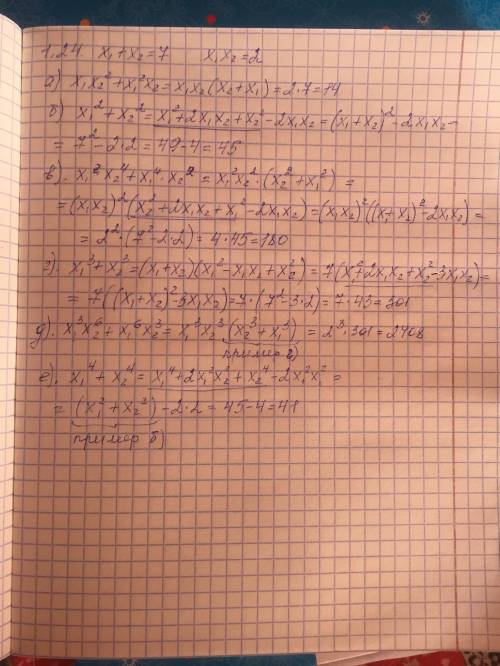 1.24 x₁+x₂=7 x₁x₂=2
а) x₁x₂²+x₁²x₂=x₁x₂(x₂+x₁)=2·7=14
б) x₁²+x₂²=x₁²+2x₁x₂+x₂²-2x₁x₂=(x₁+x₂)²-2x₁x₂-
=7²-2·2=49-4=45
в). x₁²x₂⁴+x₁⁴·x₂²=x₁²x₂²·(x₂²+x₁²)=
=(x₁x₂)²(x₂²+2x₁x₂+x₁²-2x₁x₂)=(x₁x₂)²((x₁+x₂)²-2x₁x₂)=
=2²·(7²-2·2)=4·45=180
г). x₁³+x₂³=(x₁+x₂)(x₁²-x₁x₂+x₂²)=7(x₁²+2x₁x₂+x₂²-3x₁x₂)=
=7((x₁+x₂)²-3x₁x₂)=7·(7²-3·2)=7·43=301
д). x₁³x₂⁶+x₁⁶x₂³=x₁³x₂³(x₂³+x₁³)=2³·301=2408
пример г)
е). x₁⁴+x₂⁴=x₁⁴+2x₁²x₂²+x₂⁴-2x₁²x₂²=
=(x₁²+x₂²)-2·2=45-4=41
пример б)